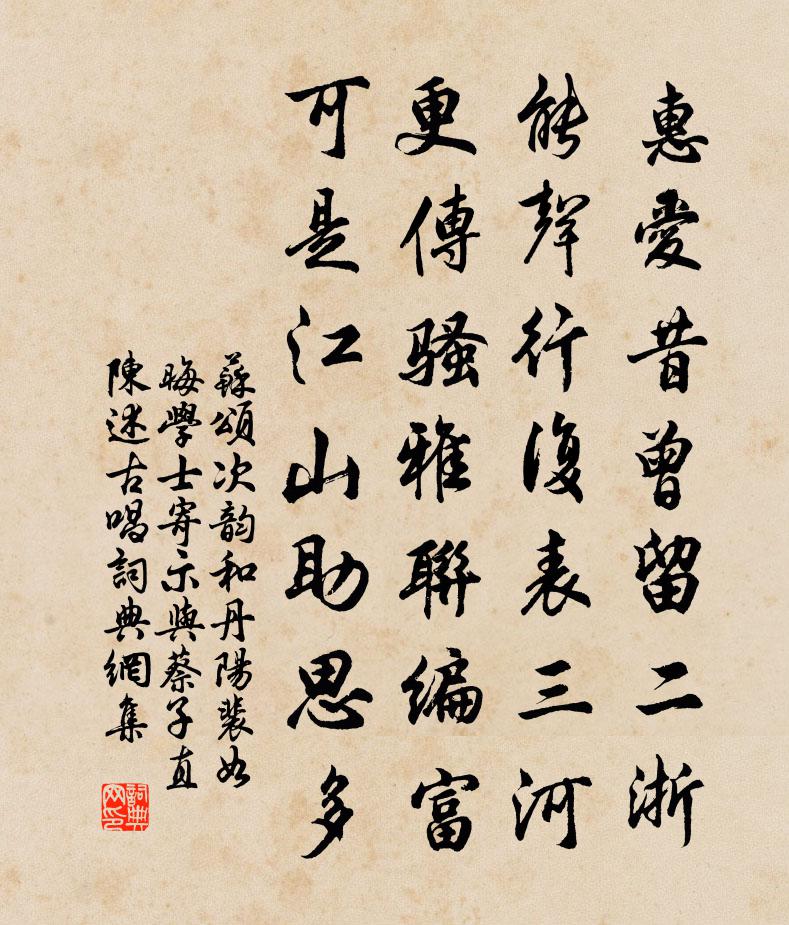 惠愛昔曾留二浙
能聲行復表三河
更傳騷雅聯編富
可是江山助思多
蘇頌次韵和丹陽裴如
晦學士寄示與蔡子直
陳述古唱詞典網集
詞典网印